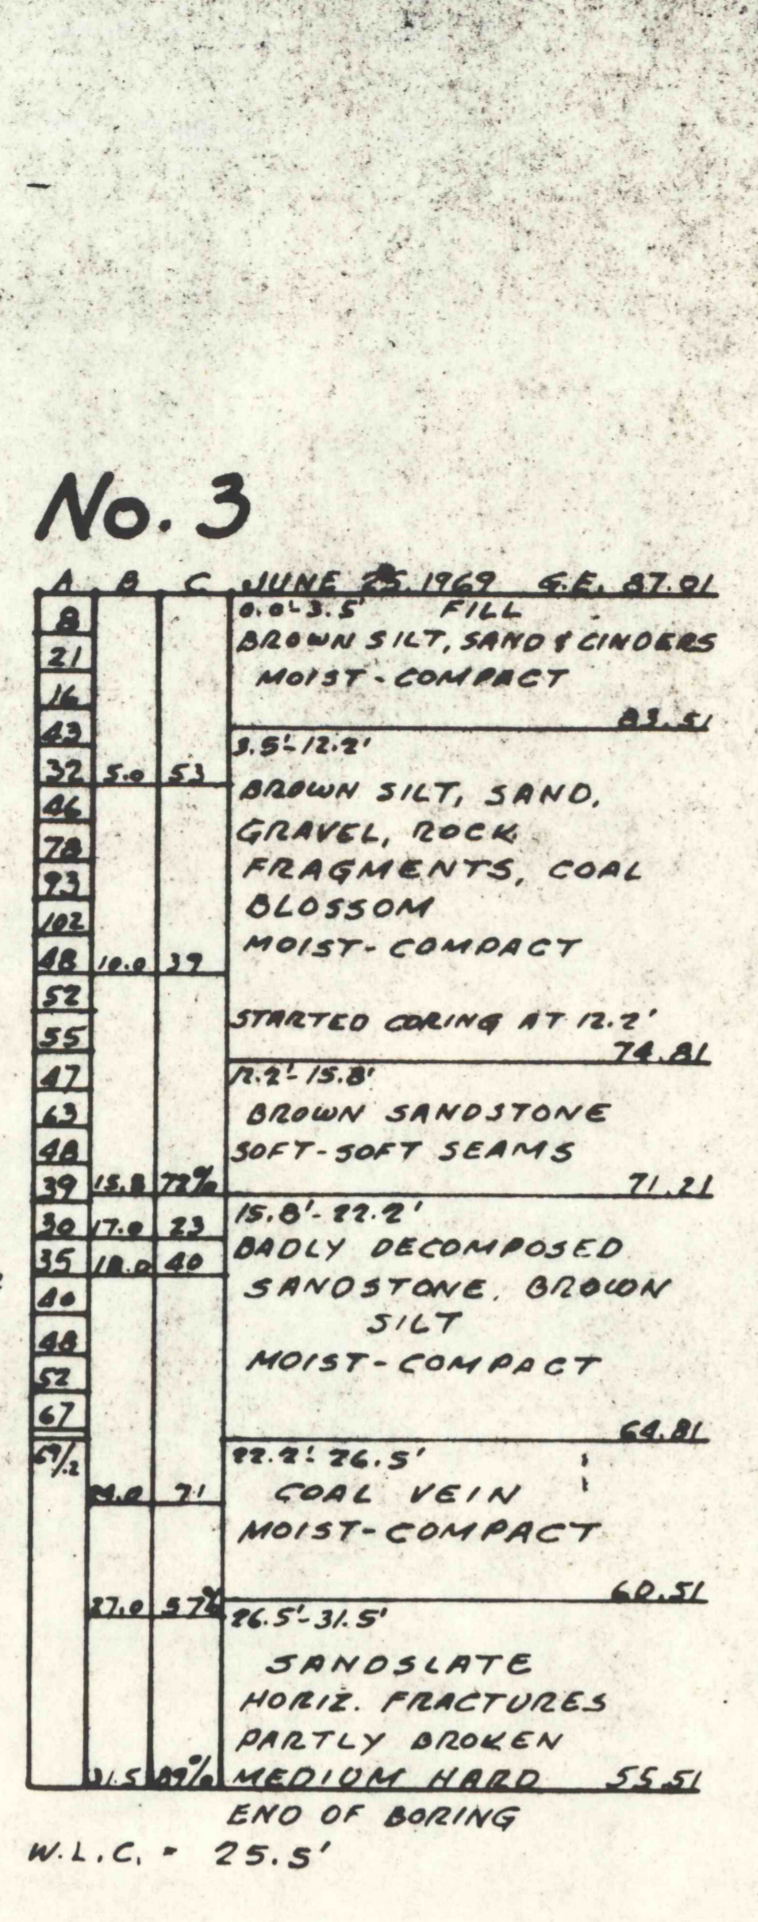 No. 3
A B C JUNE 25, 1969 G.E. 87.01
8 0.0'-3.5' FILL
21 BROWN SILT, SAND & CINDERS
16 MOIST-COMPACT
43 83.51
3.5'-12.2'
32 5.0 53 BROWN SILT, SAND,
46 GRAVEL, ROCK
78 FRAGMENTS, COAL
93 BLOSSOM
102 MOIST-COMPACT
48 10.0 39
52 STARTED CORING AT 12.2'
55 74.81
47 12.2'-15.8'
63 BROWN SANDSTONE
48 SOFT-SOFT SEAMS
39 15.8 72% 71.21
30 17.0 23 15.8'-22.2'
35 18.0 40 BADLY DECOMPOSED
40 SANDSTONE, BROWN
48 SILT
52 MOIST-COMPACT
67 64.81
69/.2 22.2'-26.5'
24.0 71 COAL VEIN
MOIST-COMPACT
60.51
27.0 57% 26.5'-31.5'
SANDSLATE
HORIZ. FRACTURES
PARTLY BROKEN
31.5 89% MEDIUM HARD 55.51
END OF BORING
W.L.C. = 25.5'